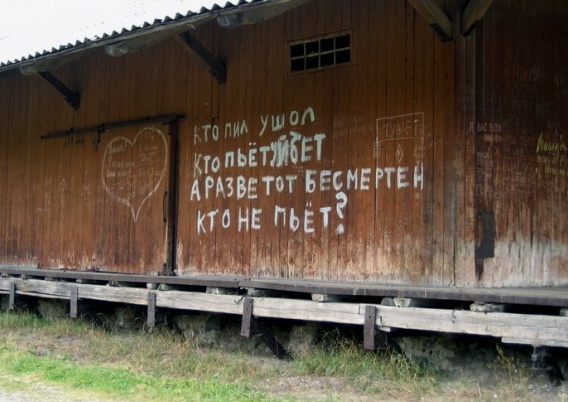 КТО ПИЛ УШОЛ
КТО ПЬЁТ УЙДЕТ
А РАЗВЕ ТОТ БЕСМЕРТЕН
КТО НЕ ПЬЁТ?